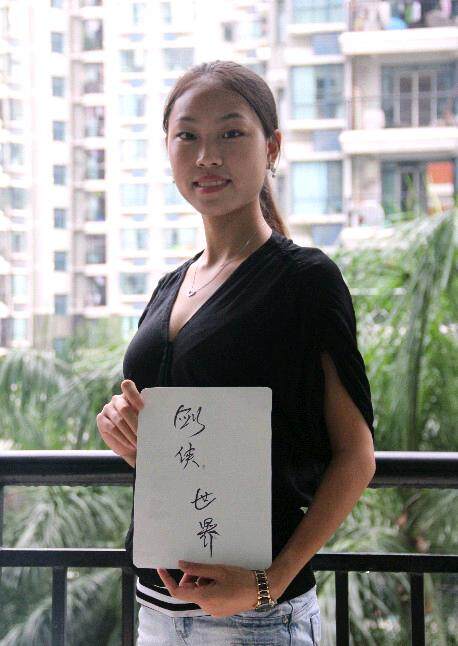 剑侠
世界